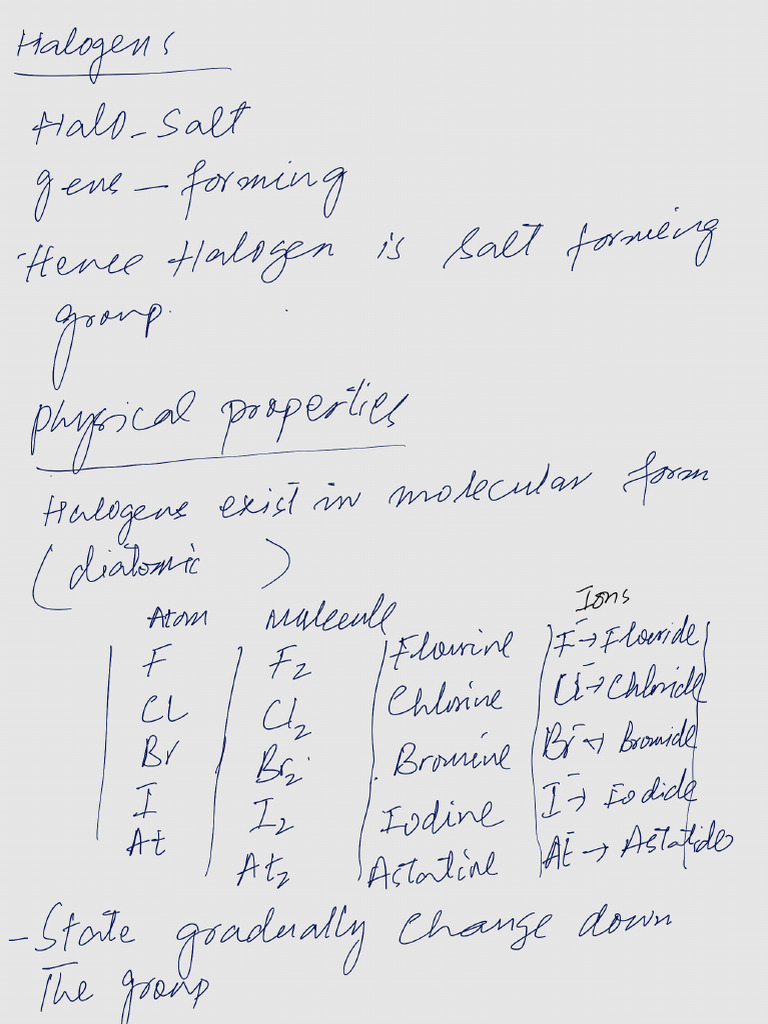 Halogens
Halo - Salt
gens - forming
Hence Halogen is salt forming
group.
Physical properties
Halogens exist in molecular form
(diatomic )
Atom Molecule Ions
F F₂ Flourine F⁻ → Flouride
Cl Cl₂ Chlorine Cl⁻ → Chloride
Br Br₂ Bromine Br⁻ → Bromide
I I₂ Iodine I⁻ → Iodide
At At₂ Astatine At⁻ → Astatide
- State gradually change down
The group